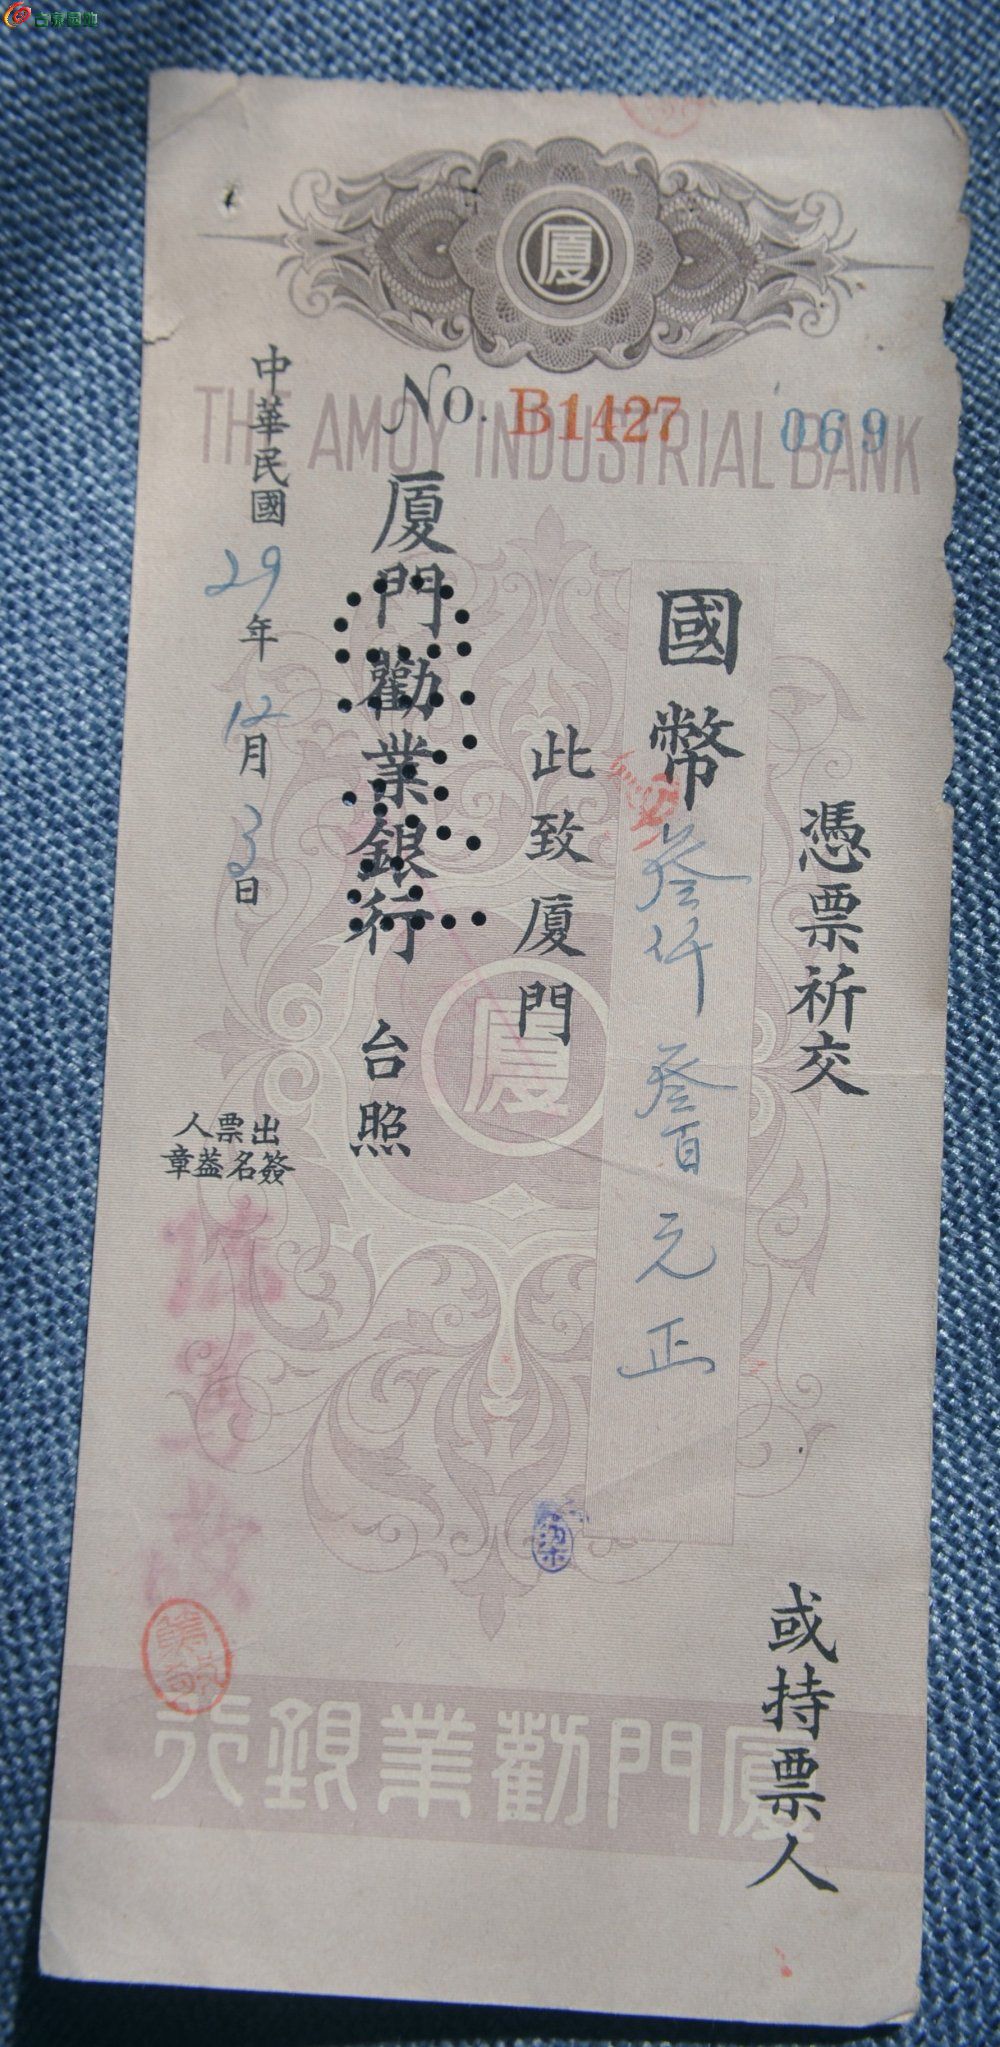 古泉园地
厦
No. B1427
069
THE AMOY INDUSTRIAL BANK
憑票祈交
或持票人
國幣叁仟叁百元正
此致厦門
厦門勸業銀行 台照
中華民國29年12月3日
出票人
簽名蓋章
厦
厦門勸業銀行